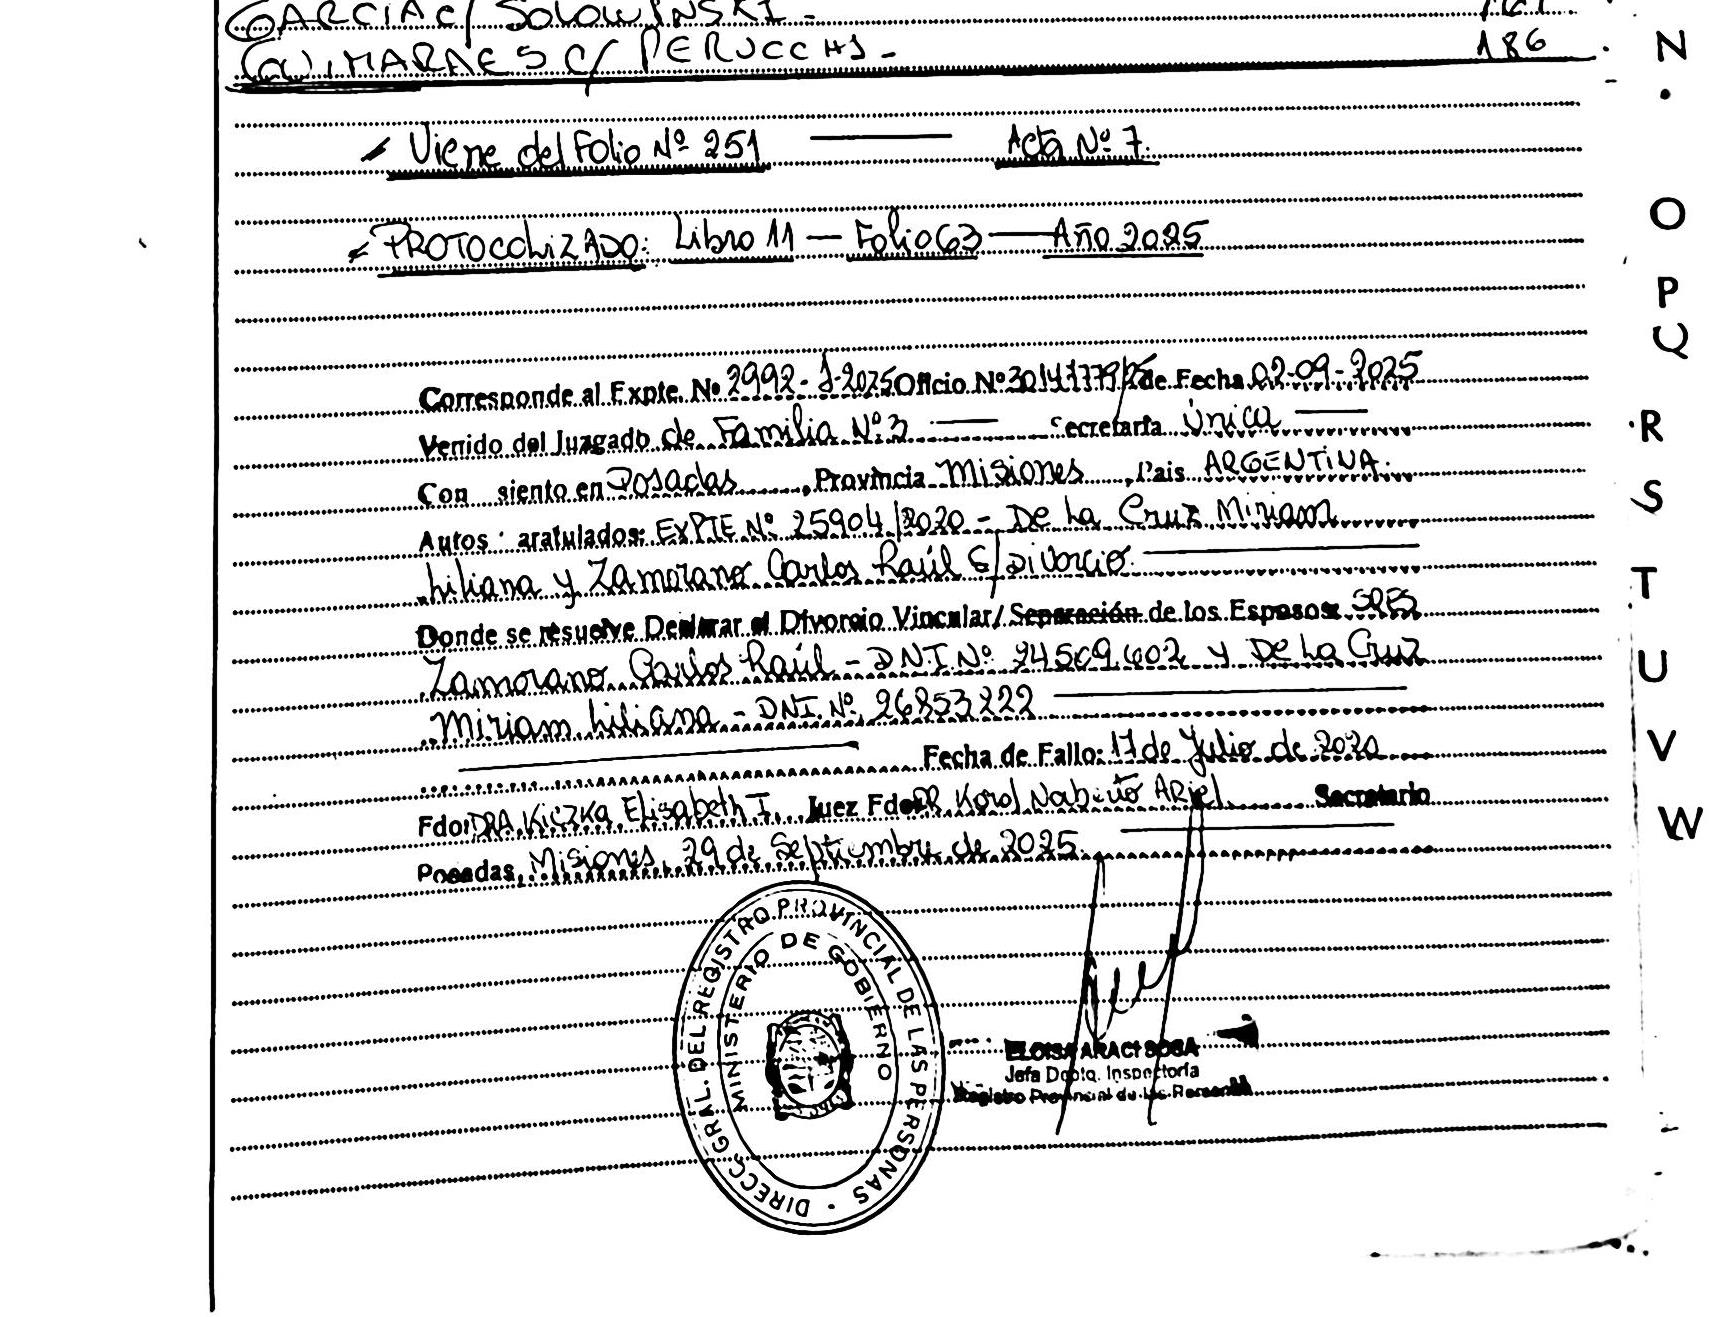 GARCIA c/ SOLOWINSKI.- 
GUIMARAES c/ PERUCCHI.- 186
Viene del Folio Nº 251 — Acta Nº 7.
PROTOCOLIZADO: Libro 11 — Folio 63 — Año 2025
Corresponde al Expte. Nº 2992-J-2025 Oficio Nº de Fecha 02-09-2025
Venido del Juzgado de Familia Nº 3 — Secretaría Única —
Con siento en Posadas, Provincia Misiones, Pais ARGENTINA.
Autos aratulados: EXPTE Nº 25904/2020 - De La Cruz Miriam
Liliana y Zamorano Carlos Raúl S/Divorcio.
Donde se resuelve Declarar el Divorcio Vincular/Separación de los Esposos: SRES
Zamorano Carlos Raúl - DNI. Nº 24569.602 y De La Cruz
Miriam Liliana - DNI. Nº 26853222
Fecha de Fallo: 17 de Julio de 2020
Fdo: DRA Kiczka Elisabeth I. Juez Fdo: DR Korol Ariel Secretario
Posadas, Misiones, 29 de Septiembre de 2025.
DIRECC. GRAL. DEL REGISTRO PROVINCIAL DE LAS PERSONAS
MINISTERIO DE GOBIERNO
ELOISA ARACI SOSA
Jefa Dpto. Inspectoría
Registro Provincial de las Personas
N
O
P
Q
R
S
T
U
V
W